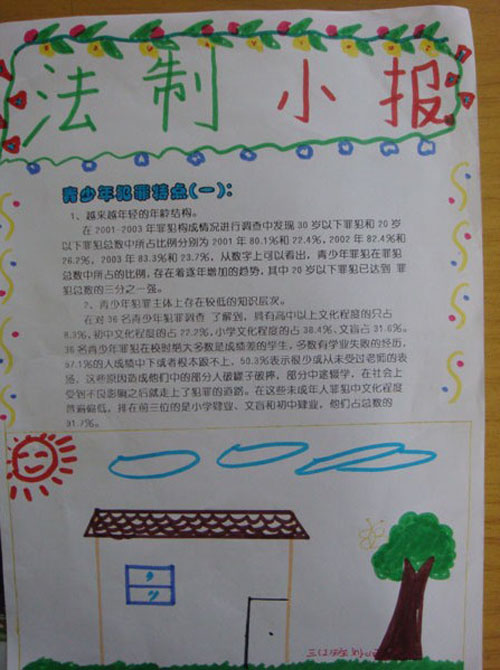 法制小报
青少年犯罪特点(一):
1、越来越年轻的年龄结构。
在 2001-2003 年罪犯构成情况进行调查中发现 30 岁以下罪犯和 20 岁
以下罪犯总数中所占比例分别为 2001 年 80.1%和 22.4%，2002 年 82.4%和
26.2%，2003 年 83.3%和 23.7%，从数字上可以看出，青少年罪犯在罪犯
总数中所占的比例，存在着逐年增加的趋势，其中 20 岁以下罪犯已达到 罪
犯总数的三分之一强。
2、青少年犯罪主体上存在较低的知识层次。
在对 36 名青少年罪犯调查 了解到，具有高中以上文化程度的只占
8.3%，初中文化程度的占 22.2%，小学文化程度的占 38.4%，文盲占 31.6%。
36 名青少年罪犯在校时绝大多数是成绩差的学生，多数有学业失败的经历，
57.1%的人成绩中下或者根本跟不上，50.3%表示很少或从未受过老师的表
扬，这些原因造成他们中的部分人破罐子破摔，部分中途辍学，在社会上
受到不良影响之后就走上了犯罪的道路。在这些未成年人罪犯中文化程度
普遍偏低，排在前三位的是小学肄业、文盲和初中肄业，他们占总数的
91.7%。